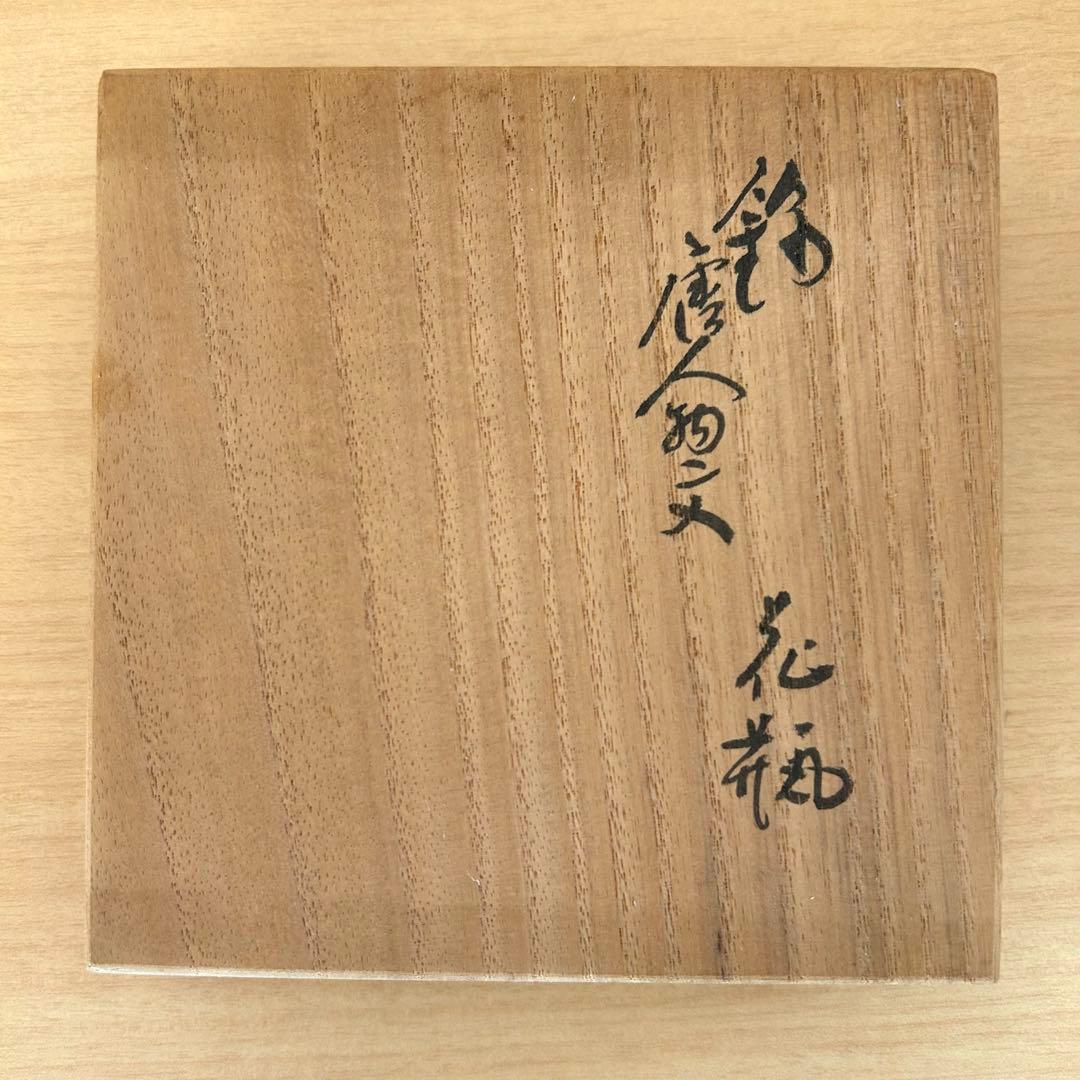 錦
唐人物文
花瓶